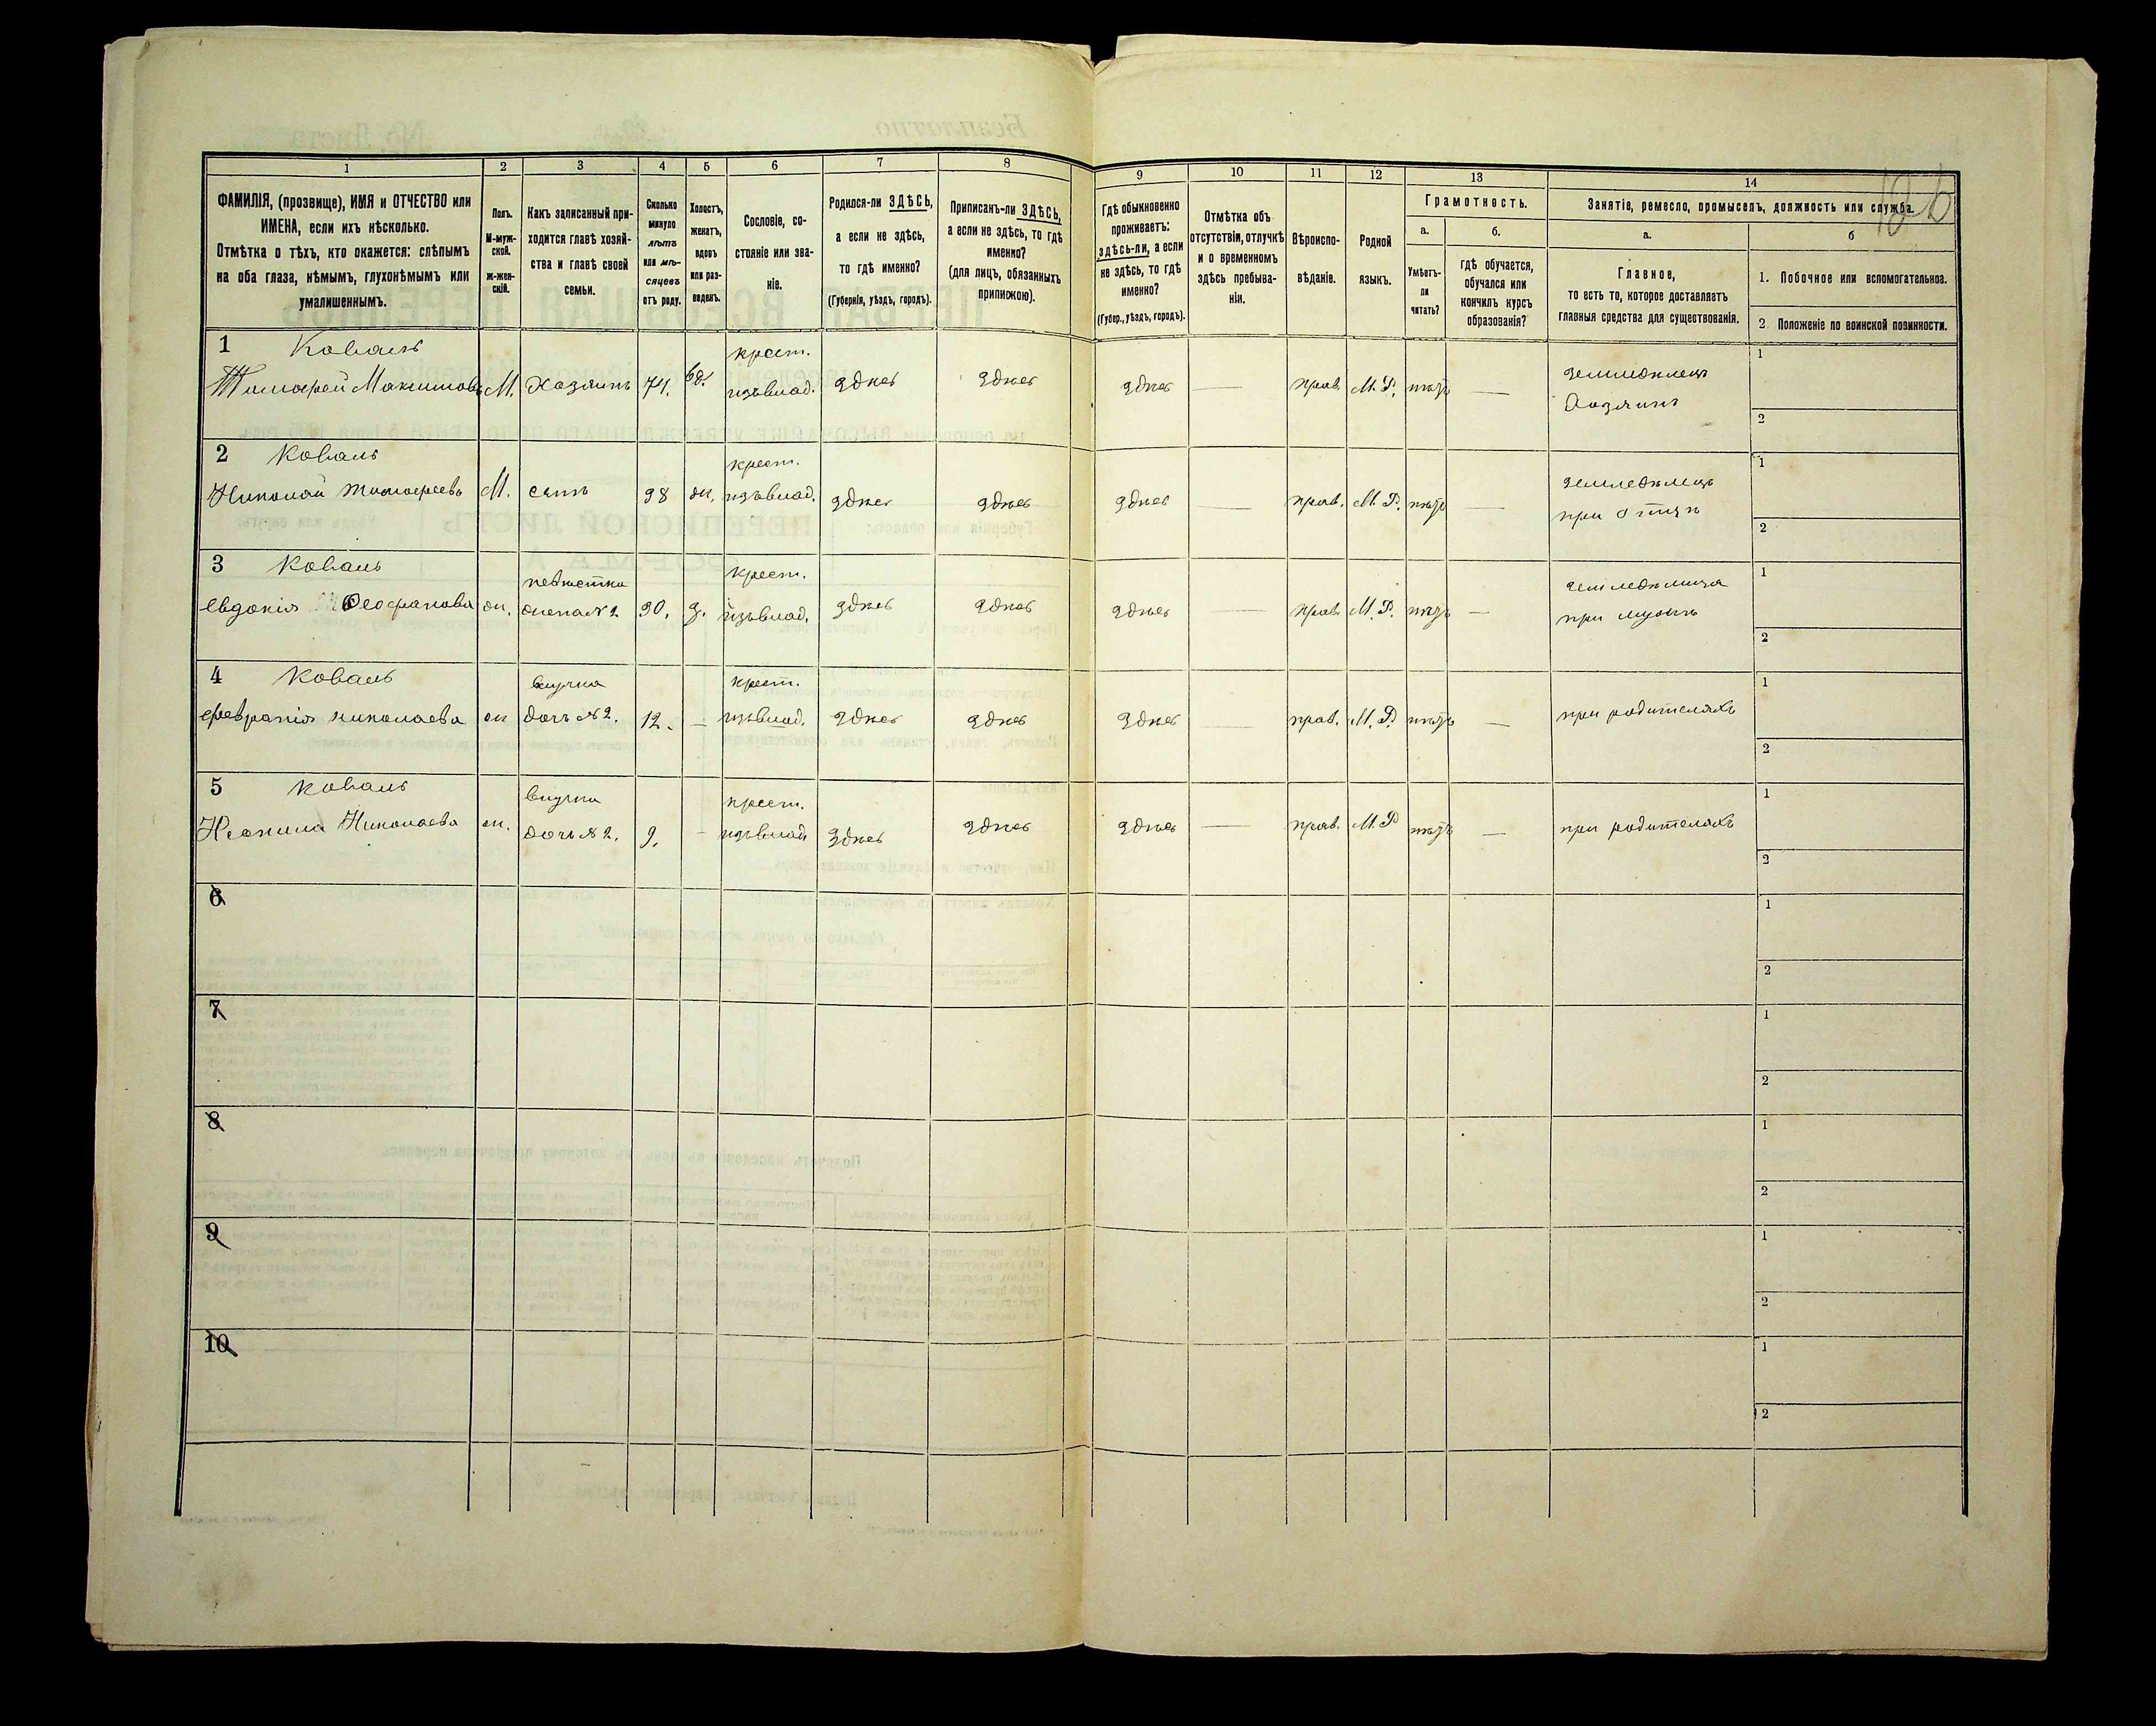 1 2 3 4 5 6 7 8 9 10 11 12 13 14
ФАМИЛІЯ, (прозвище), ИМЯ и ОТЧЕСТВО или
ИМЕНА, если ихъ нѣсколько.
Отмѣтка о тѣхъ, кто окажется: слѣпымъ
на оба глаза, нѣмымъ, глухонѣмымъ или
умалишеннымъ.
Полъ.
М-муж-
ской.
ж-жен-
скій.
Какъ записанный при-
ходится главѣ хозяй-
ства и главѣ своей
семьи.
Сколько
минуло
лѣтъ
или мѣ-
сяцевъ
отъ роду.
Холостъ,
женатъ,
вдовъ
или раз-
веденъ.
Сословіе, со-
стояніе или зва-
ніе.
Родился-ли ЗДѢСЬ,
а если не здѣсь,
то гдѣ именно?
(Губернія, уѣздъ, городъ).
Приписанъ-ли ЗДѢСЬ,
а если не здѣсь, то гдѣ
именно?
(для лицъ, обязанныхъ
припискою).
Гдѣ обыкновенно
проживаетъ:
здѣсь-ли, а если
не здѣсь, то гдѣ
именно?
(Губер., уѣздъ, городъ).
Отмѣтка объ
отсутствіи, отлучкѣ
и о временномъ
здѣсь пребыва-
ніи.
Вѣроиспо-
вѣданіе.
Родной
языкъ.
Грамотность.
а.
Умѣетъ-
ли
читать?
б.
гдѣ обучается,
обучался или
кончилъ курсъ
образованія?
Занятіе, ремесло, промыселъ, должность или служба.
а.
Главное,
то есть то, которое доставляетъ
главныя средства для существованія.
б
1. Побочное или вспомогательное.
2. Положеніе по воинской повинности.
1 Коваль крест. земледѣлецъ 1
Тимофей Максимовъ М. Хозяинъ 74. вд. изъ влад. здѣсь здѣсь здѣсь — прав. М. Р. нѣтъ — Хозяинъ
2
2 Коваль крест. земледѣлецъ 1
Николай Тимофеевъ М. сынъ 38 ж. изъ влад. здѣсь здѣсь здѣсь — прав. М. Р. нѣтъ — при отцѣ
2
3 Коваль невѣстка крест. земледѣлица 1
Евдокія Феофанова ж. жена № 2 30. з. изъ влад. здѣсь здѣсь здѣсь — прав. М. Р. нѣтъ — при мужѣ
2
4 Коваль внучка крест. 1
Февронія Николаева ж дочь № 2. 12. — изъ влад. здѣсь здѣсь здѣсь — прав. М. Р. нѣтъ — при родителяхъ
2
5 Коваль внучка крест. 1
Неонила Николаева ж. дочь № 2. 9. — изъ влад здѣсь здѣсь здѣсь — прав. М. Р нѣтъ — при родителяхъ
2
6 1
2
7 1
2
8 1
2
9 1
2
10 1
2